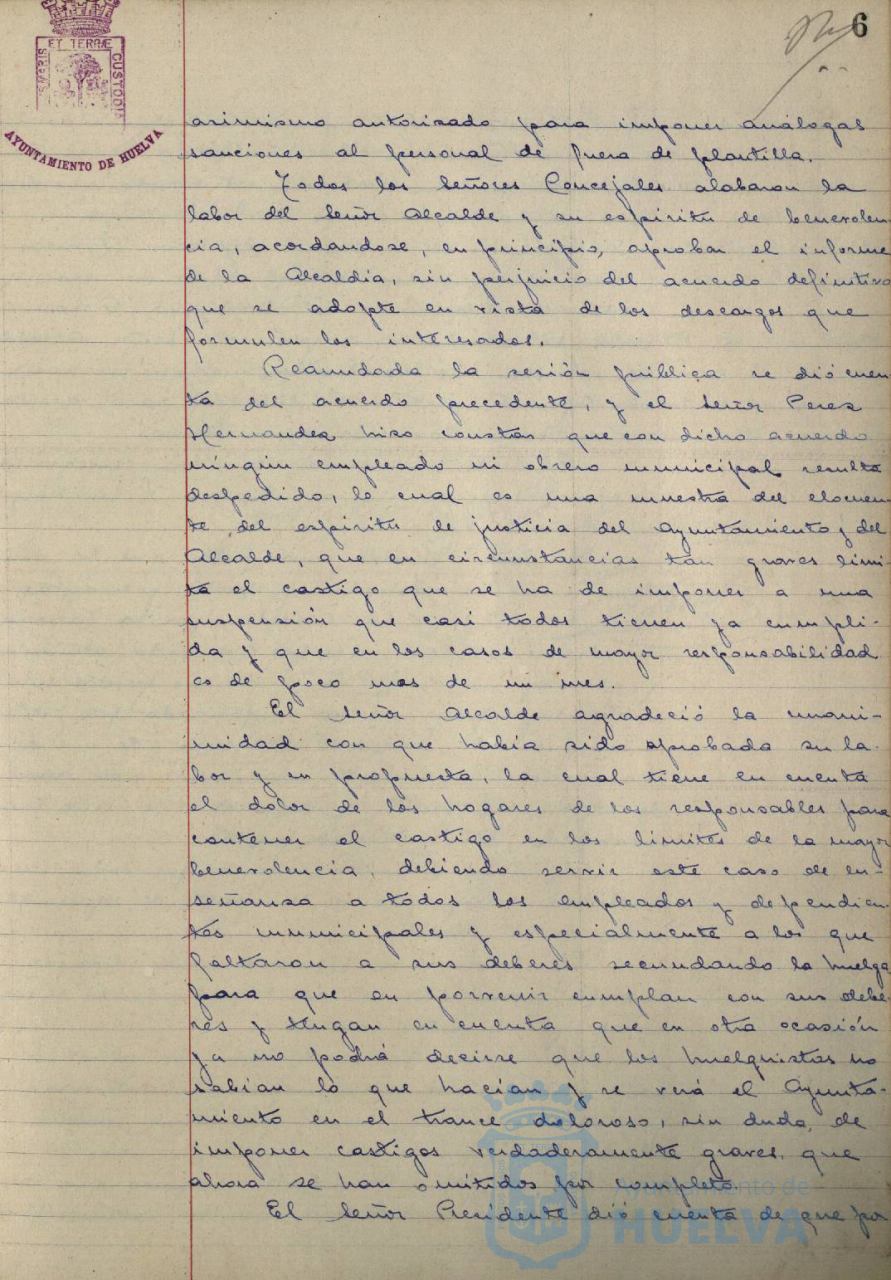 6
ET TERRÆ
CUSTODIA
AYUNTAMIENTO DE HUELVA
asimismo autorizado para imponer análogas
sanciones al personal de fuera de plantilla.
Todos los señores Concejales alabaron la
labor del señor Alcalde y su espiritu de benevolen-
cia, acordandose, en principio, aprobar el informe
de la Alcaldía, sin perjuicio del acuerdo definitivo
que se adopte en vista de los descargos que
formulen los interesados.
Reanudada la sesión pública se dió cuen-
ta del acuerdo precedente, y el señor Perez
Hernandez hizo constar que con dicho acuerdo
ningún empleado ni obrero municipal resulta
despedido, lo cual es una muestra del elocuen-
te del espiritu de justicia del Ayuntamiento y del
Alcalde, que en circunstancias tan graves limi-
ta el castigo que se ha de imponer a una
suspensión que casi todos tienen ya cumpli-
da y que en los casos de mayor responsabilidad
es de poco mas de un mes.
El señor Alcalde agradeció la unani-
midad con que había sido aprobada su la-
bor y su propuesta, la cual tiene en cuenta
el dolor de los hogares de los responsables para
contener el castigo en los limites de la mayor
benevolencia, debiendo servir este caso de en-
señanza a todos los empleados y dependien-
tes municipales y especialmente a los que
faltaron a sus deberes secundando la huelga
para que en porvenir cumplan con sus debe-
res y tengan en cuenta que en otra ocasión
ya no podrá decirse que los huelguistas no
sabian lo que hacían y se verá el Ayunta-
miento en el trance doloroso, sin duda, de
imponer castigos verdaderamente graves, que
ahora se han omitidos por completo.
El señor Presidente dió cuenta de que por
Ayuntamiento de
HUELVA